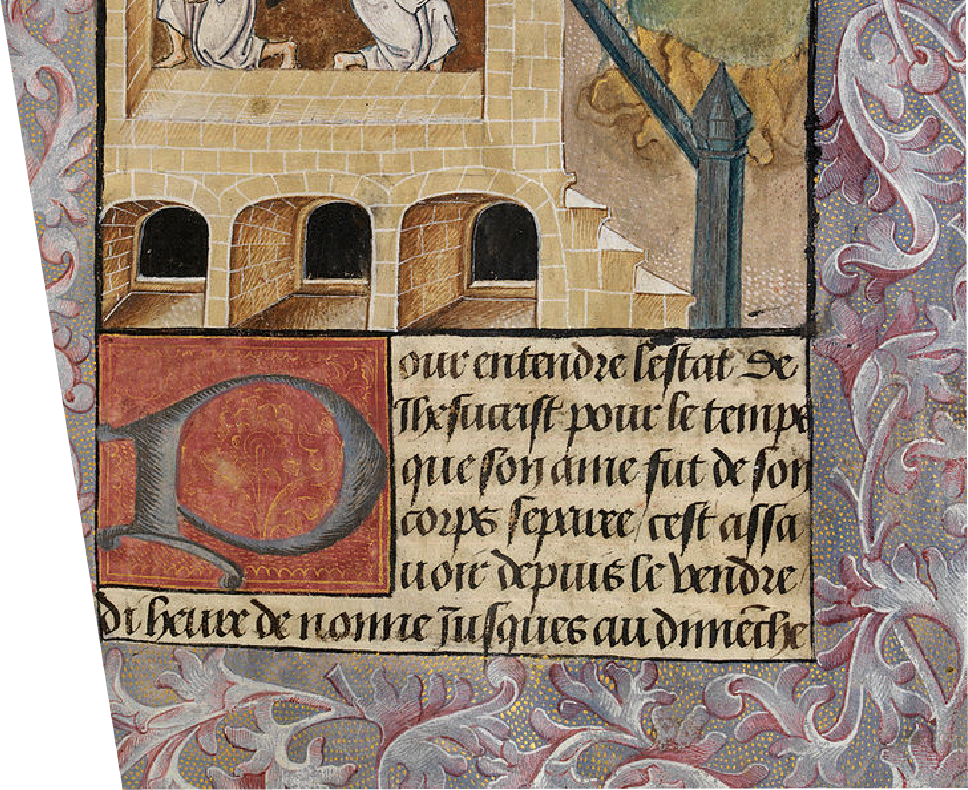 Pour entendre lestat de
Jhesucrist pour le temps
que son ame fut de son
corps separee / cest assa
uoir depuis le vendre
di heure de nonne Jusques au dimẽche